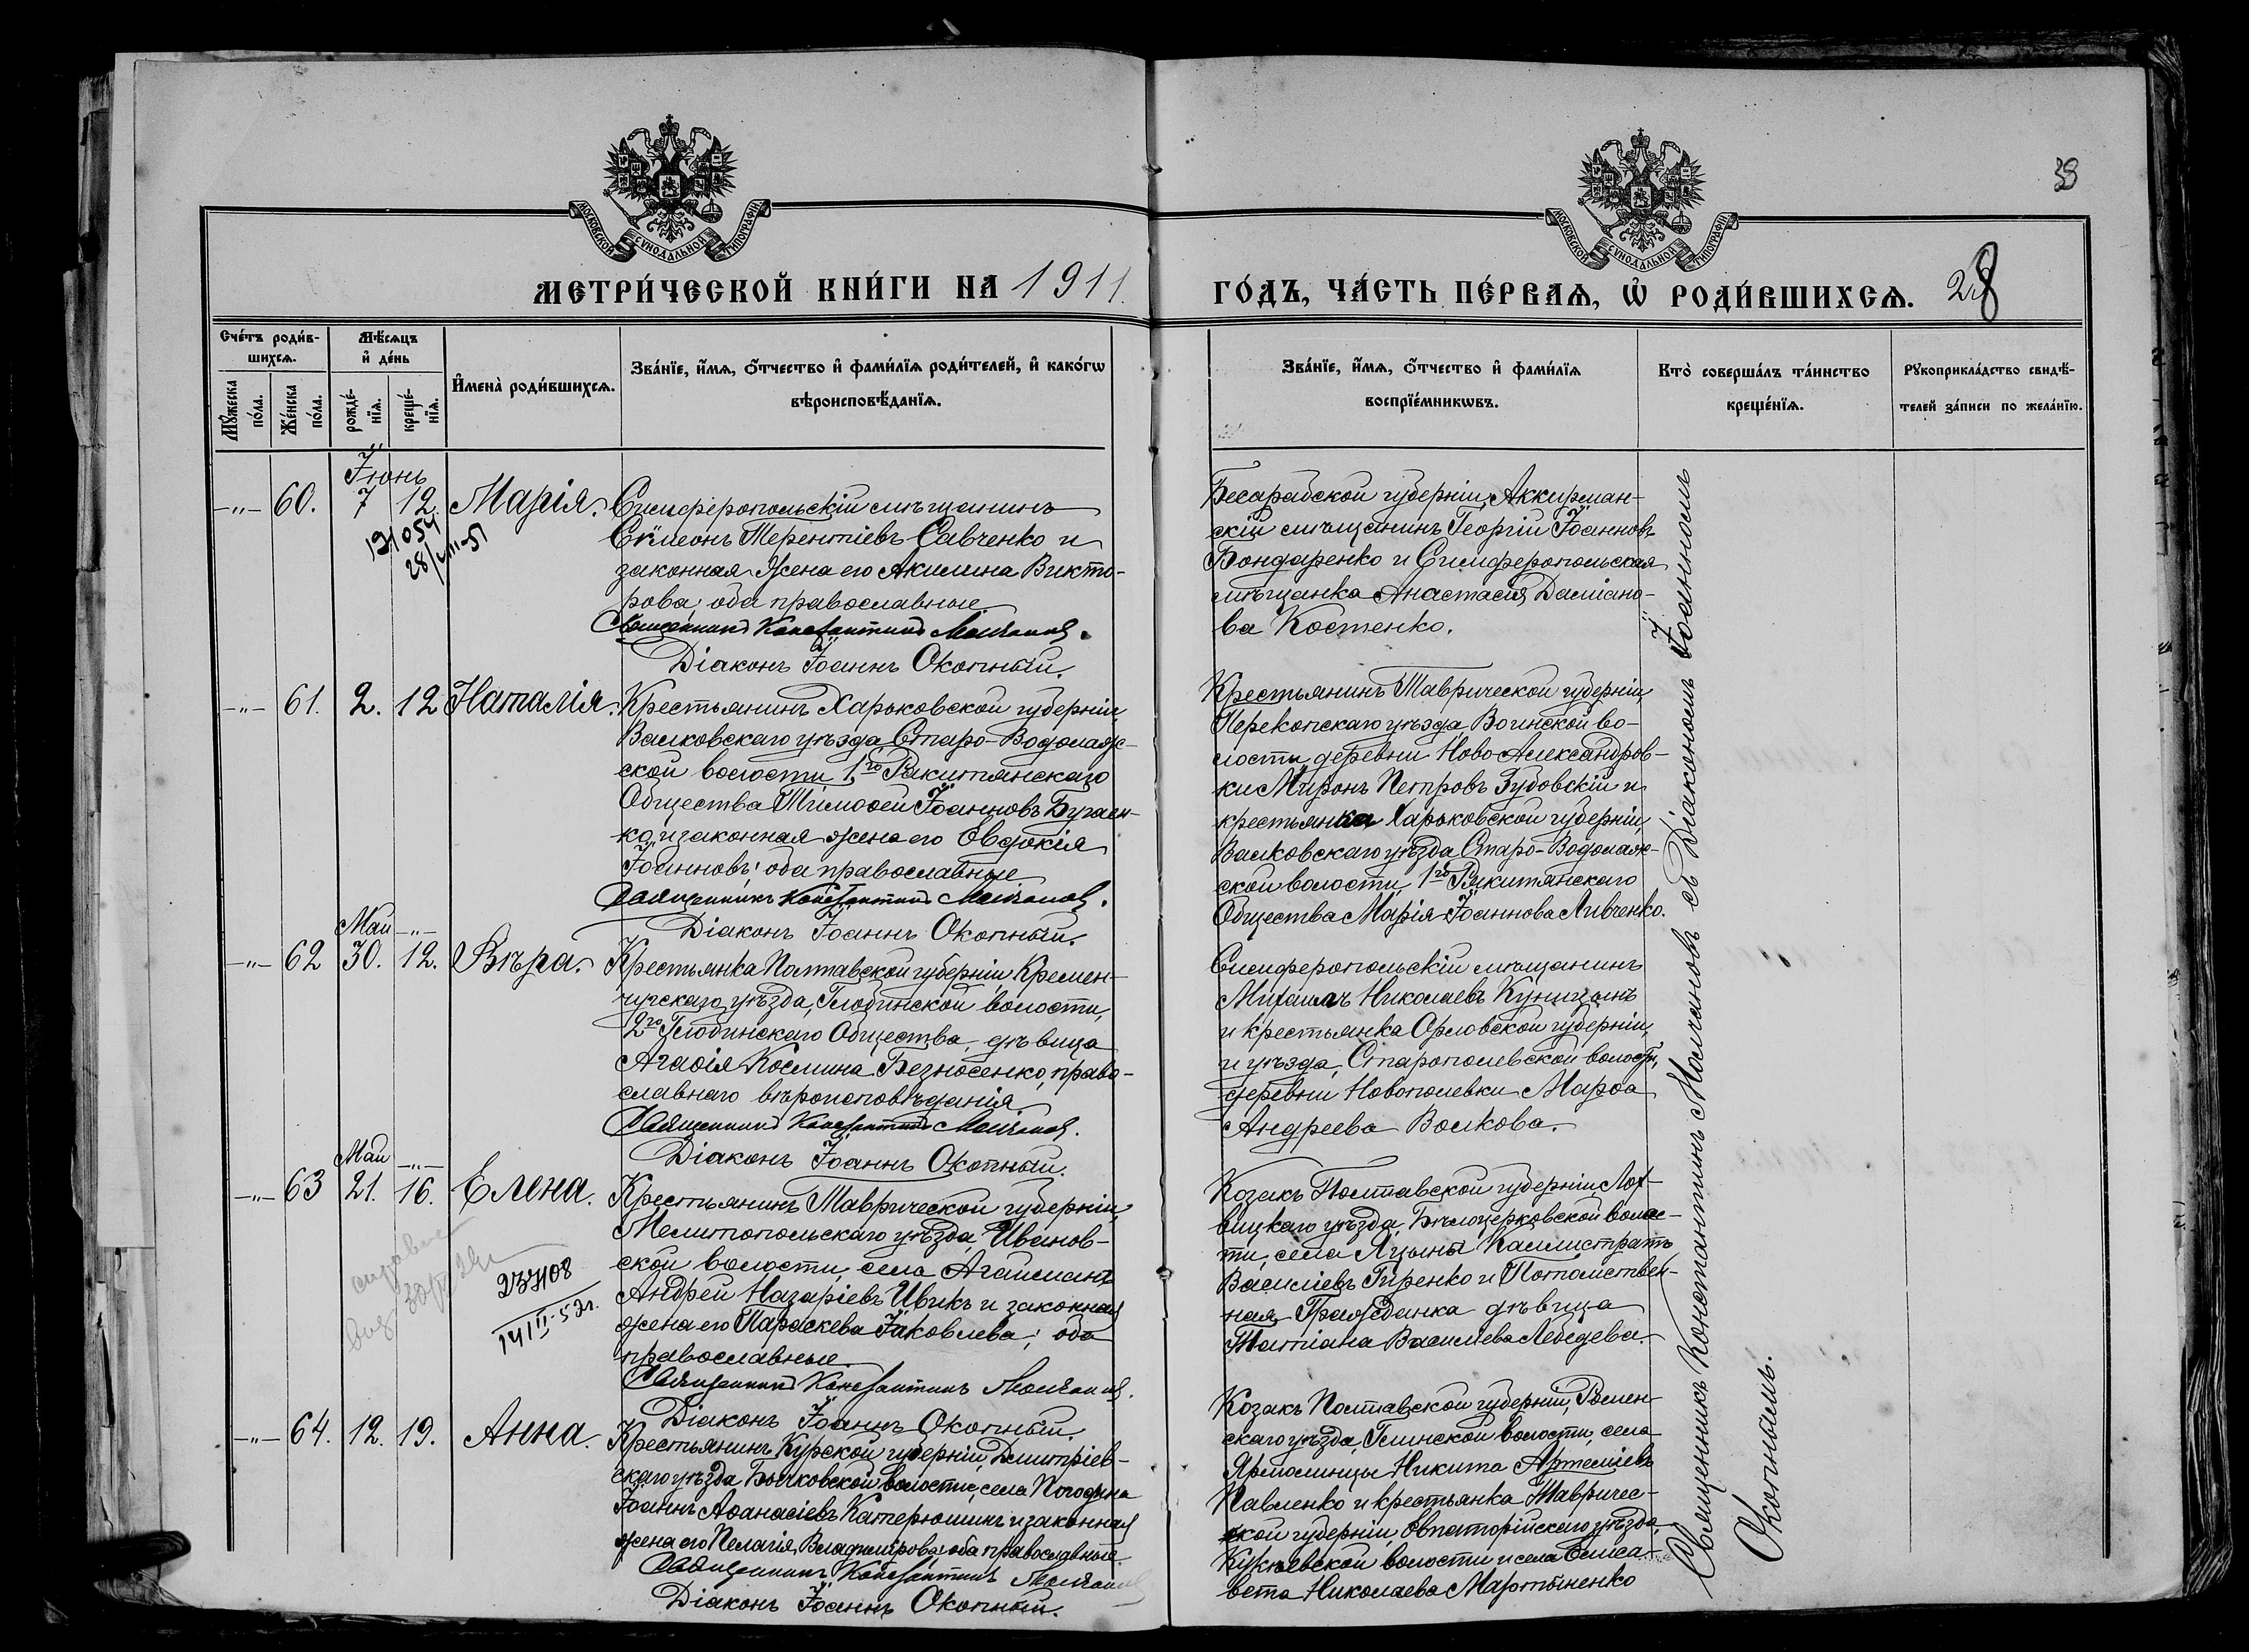 МОСКОВСКОЙ СѴНОДАЛЬНОЙ ТИПОГРАФІИ
МОСКОВСКОЙ СѴНОДАЛЬНОЙ ТИПОГРАФІИ
МЕТРИ́ЧЕСКОЙ КНИ́ГИ НА 1911.
ГО́ДЪ, ЧА́СТЬ ПЕ́РВАѦ, Ѡ҆ РОДИ́ВШИХСѦ. 28
Сче́тъ роди́в-
шихсѧ.
Мꙋ́жеска по́ла.
Же́нска по́ла.
Мѣ́сѧцъ
и҆ де́нь
рожде́-нїѧ.
креще́-нїѧ.
И҆мена̀ роди́вшихсѧ.
Зва́нїе, и҆́мѧ, ѻ҆́тчество и҆ фами́лїѧ роди́телей, и҆ како́гѡ
вѣроисповѣ́данїѧ.
Зва́нїе, и҆́мѧ, ѻ҆́тчество и҆ фами́лїѧ
воспрїе́мникѡвъ.
Кто̀ соверша́лъ та́инство
креще́нїѧ.
Рꙋкоприкла́дство свидѣ́-
телей за́писи по жела́нїю.
Іюнь
-„- 60. 7 12 Марія.
28/VIII-51
Симферопольскій мѣщанинъ
Сѵмеонъ Терентіевъ Савченко и
законная жена его Акилина Викто-
рова; оба православные.
Священникъ Константинъ Молчановъ.
Діаконъ Іоаннъ Окопный.
Бесарабской губерніи, Аккирман-
скій мѣщанинъ Георгій Іоанновъ
Бондаренко и Симферопольская
мѣщанка Анастасія Даміано-
ва Костенко.
-„- 61. 2. 12 Наталія.
Крестьянинъ Харьковской губерніи,
Валковскаго уѣзда, Старо-Водолаж-
ской волости, 1го Ракитянскаго
Общества Тимоѳей Іоанновъ Бугаен-
ко, и законная жена его Евдокія
Іоаннова; оба православные
Священникъ Константинъ Молчановъ.
Діаконъ Іоаннъ Окопный.
Крестьянинъ Таврической губерніи,
Перекопскаго уѣзда, Воинской во-
лости, деревни Ново Александров-
ки Миронъ Петровъ Зубовскій и
крестьянка Харьковской губерніи,
Валковскаго уѣзда, Старо-Водолаж-
ской волости, 1го Ракитянскаго
Общества Марія Іоаннова Ливченко.
Май -„-
-„- 62 30. 12. Вѣра.
Крестьянка Полтавской губерніи, Кремен-
чугскаго уѣзда, Глобинской волости,
2го Глобинскаго Общества, дѣвица
Агаѳія Космина Безносенко, право-
славнаго вѣроисповѣданія.
Священникъ Константинъ Молчановъ.
Діаконъ Іоаннъ Окопный.
Симферопольскій мѣщанинъ
Михаилъ Николаевъ Куницынъ
и крестьянка Орловской губерніи,
и уѣзда, Старополевской волости,
деревни Новополевки Марѳа
Андреева Волкова.
Май -„-
-„- 63 21. 16. Елена.
237108
14/II-52г.
Крестьянинъ Таврической губерніи,
Мелитопольскаго уѣзда, Иванов-
ской волости, села Агаймана
Андрей Назаріевъ Ивикъ и законная
жена его Параскева Іаковлева; оба
православные.
Священникъ Константинъ Молчановъ.
Діаконъ Іоаннъ Окопный.
Козакъ Полтавской губерніи Лох-
вицкаго уѣзда, Бѣлоцерковской волос-
ти, села Яцыны Каллистратъ
Василіевъ Гиренко и Потомствен-
ная Гражданка дѣвица
Татіана Василіева Лебедева.
-„- 64. 12. 19. Анна.
Крестьянинъ Курской губерніи, Дмитріев-
скаго уѣзда, Бычковской волости, села Погодина
Іоаннъ Аѳанасіевъ Катерюшинъ и законная
жена его Пелагія Владимірова; оба православные.
Священникъ Константинъ Молчановъ
Діаконъ Іоаннъ Окопный.
Козакъ Полтавской губерніи, Ромен-
скаго уѣзда, Глинской волости, села
Ярмолинцы Никита Артеміевъ
Павленко и крестьянка Тавричес-
кой губерніи, Евпаторійскаго уѣзда,
волости и села Елиса-
вета Николаева Мартыненко
Священникъ Константинъ Молчановъ съ Діакономъ Іоанномъ
Окопнымъ.